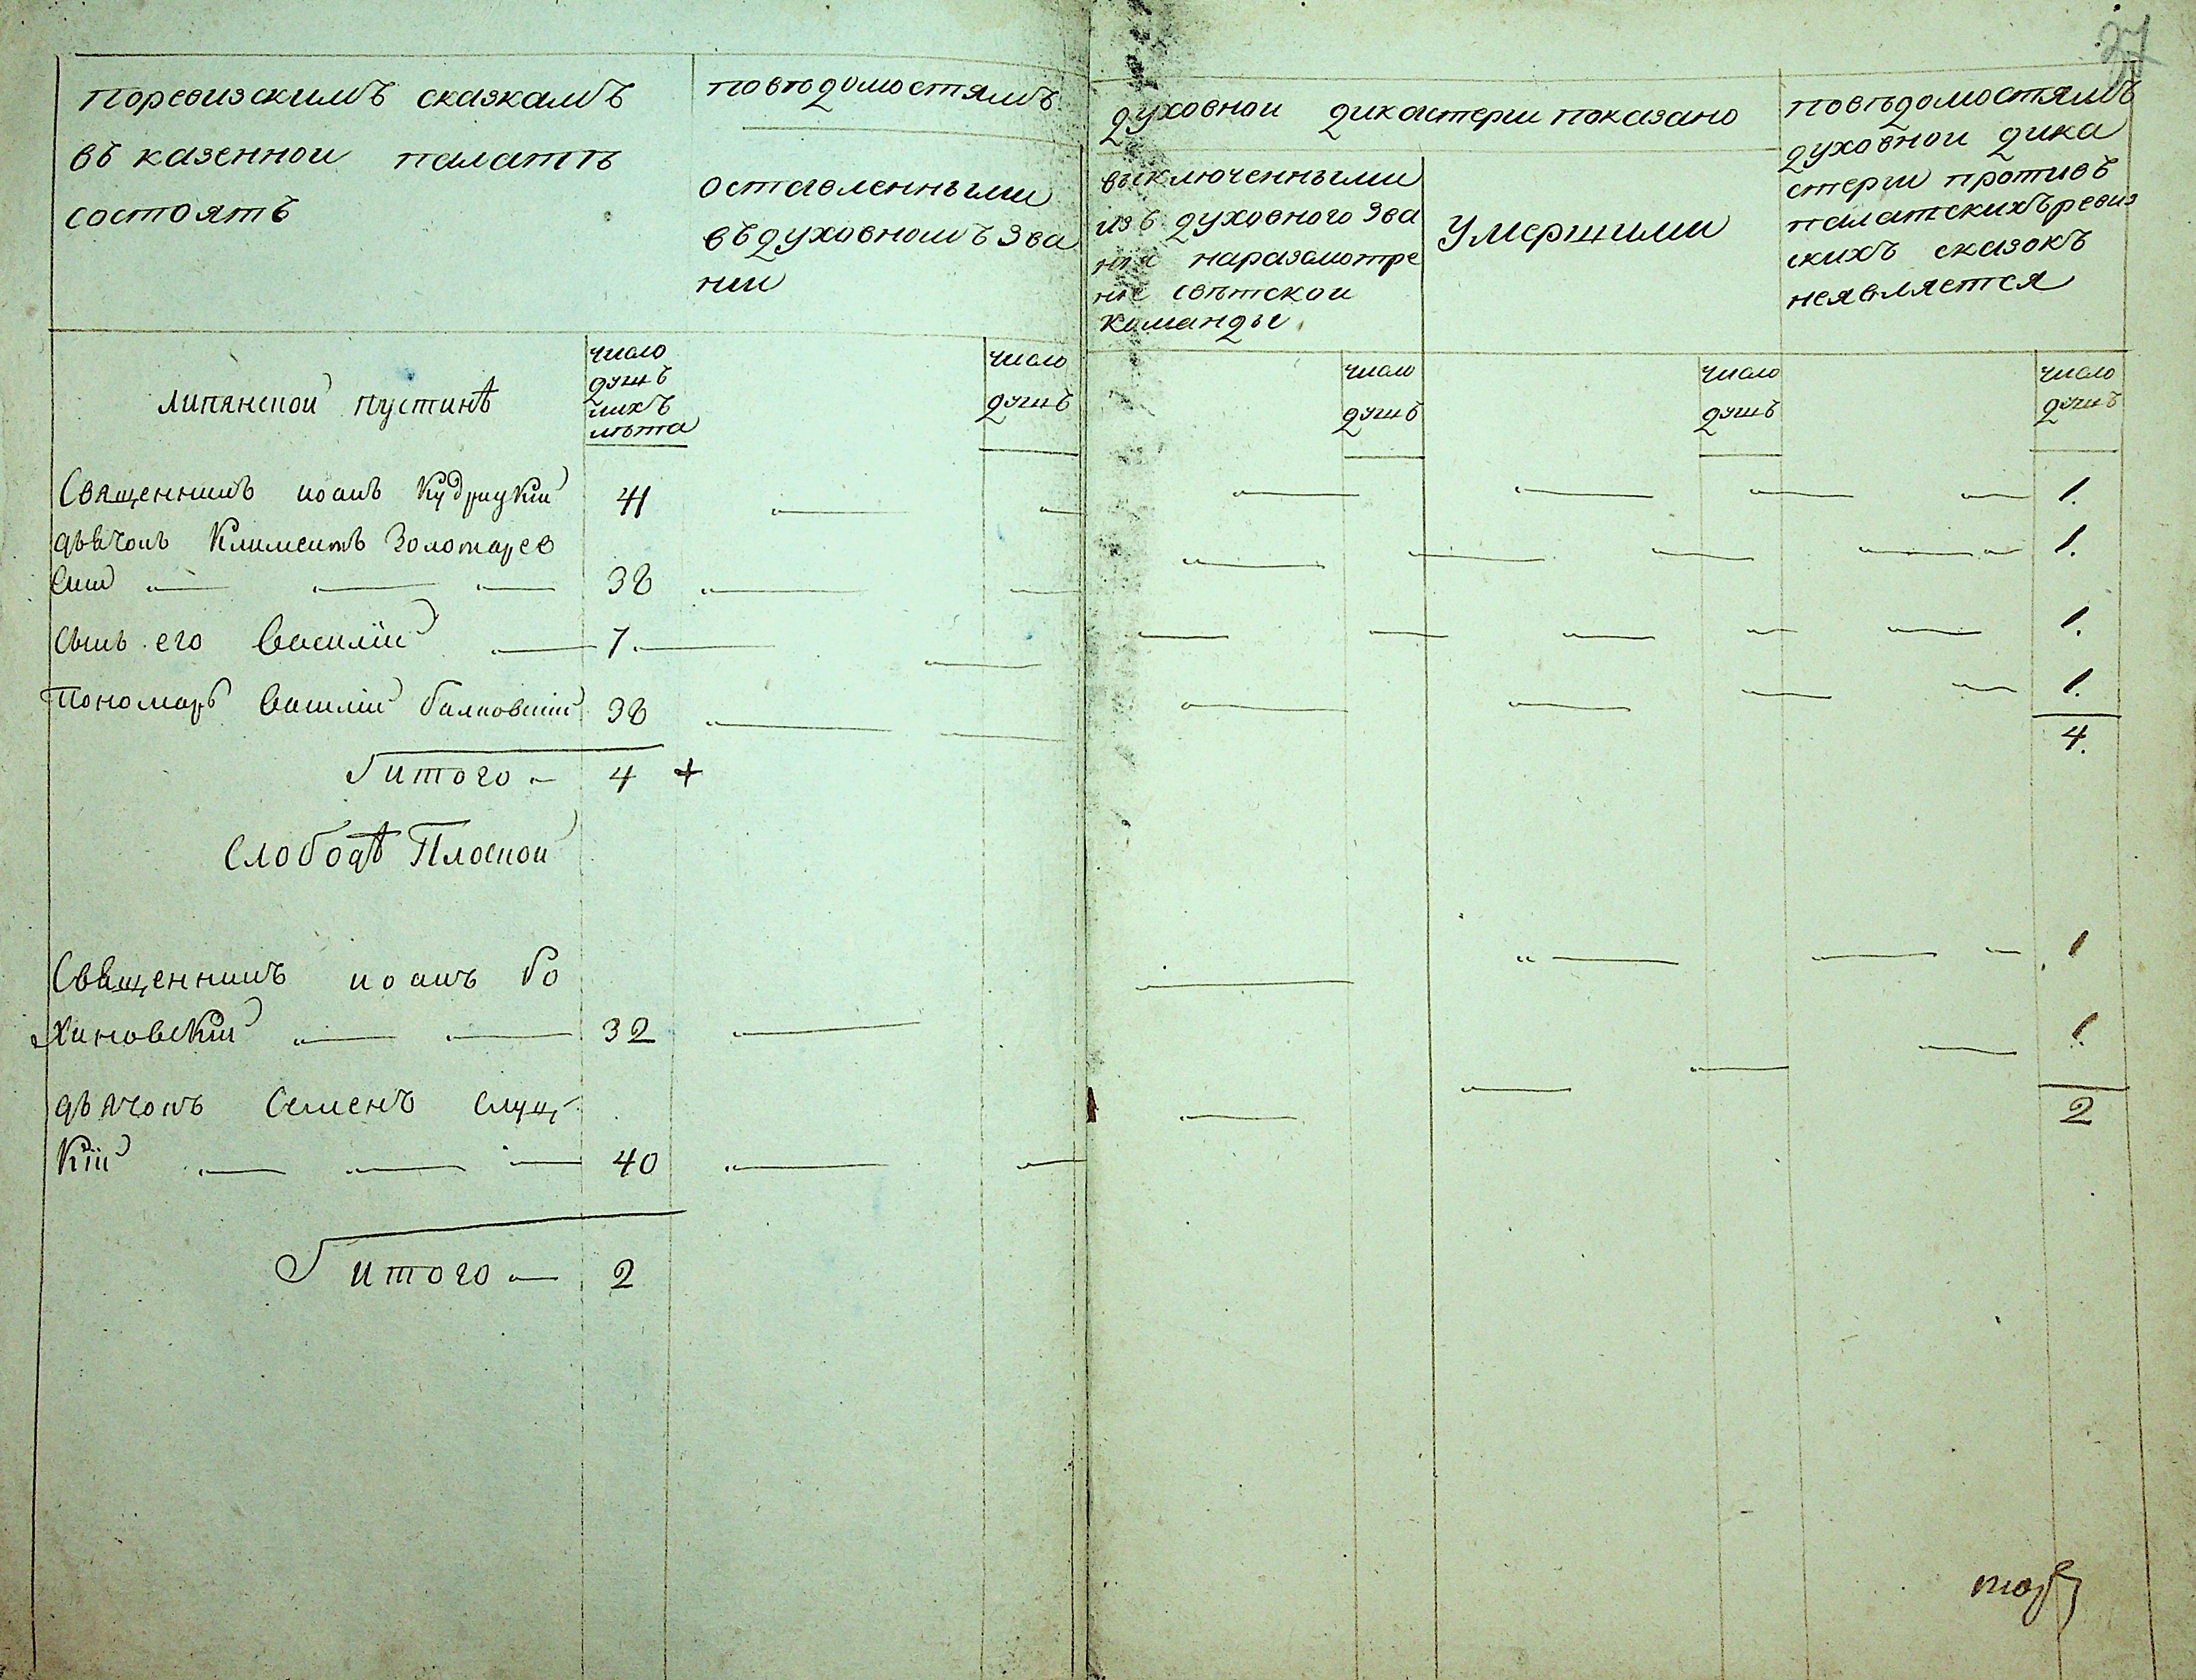 37
поревизскимъ сказкамъ
въ казенной палатѣ
состоятъ
повѣдомостямъ
оставленными
въдуховномъ Зва
нии
духовной дикастерии показано
выключенными
изъ духовного Зва
ния наразсмотре
ние свѣтской
команды
Умершими
повѣдомостямъ
духовной дика
стерии противъ
палатскихъ ревиз
скихъ сказокъ
неявляется
Липянской пустинѣ
число
душъ
иихъ
лѣта
число
душъ
число
душъ
число
душъ
число
душъ
Священникъ иоанъ Кудрицкій 41 1.
дьячокъ Климентъ Золотарев
скій 38 1.
сынъ его Василій 7 1.
Пономарь Василій балковскій 38 1.
итого 4 + 4.
Слободѣ Плоской
Священникъ иоанъ бо
хиновскій 32 1
дьячокъ Семенъ слущ
кій 40 1.
итого 2 2